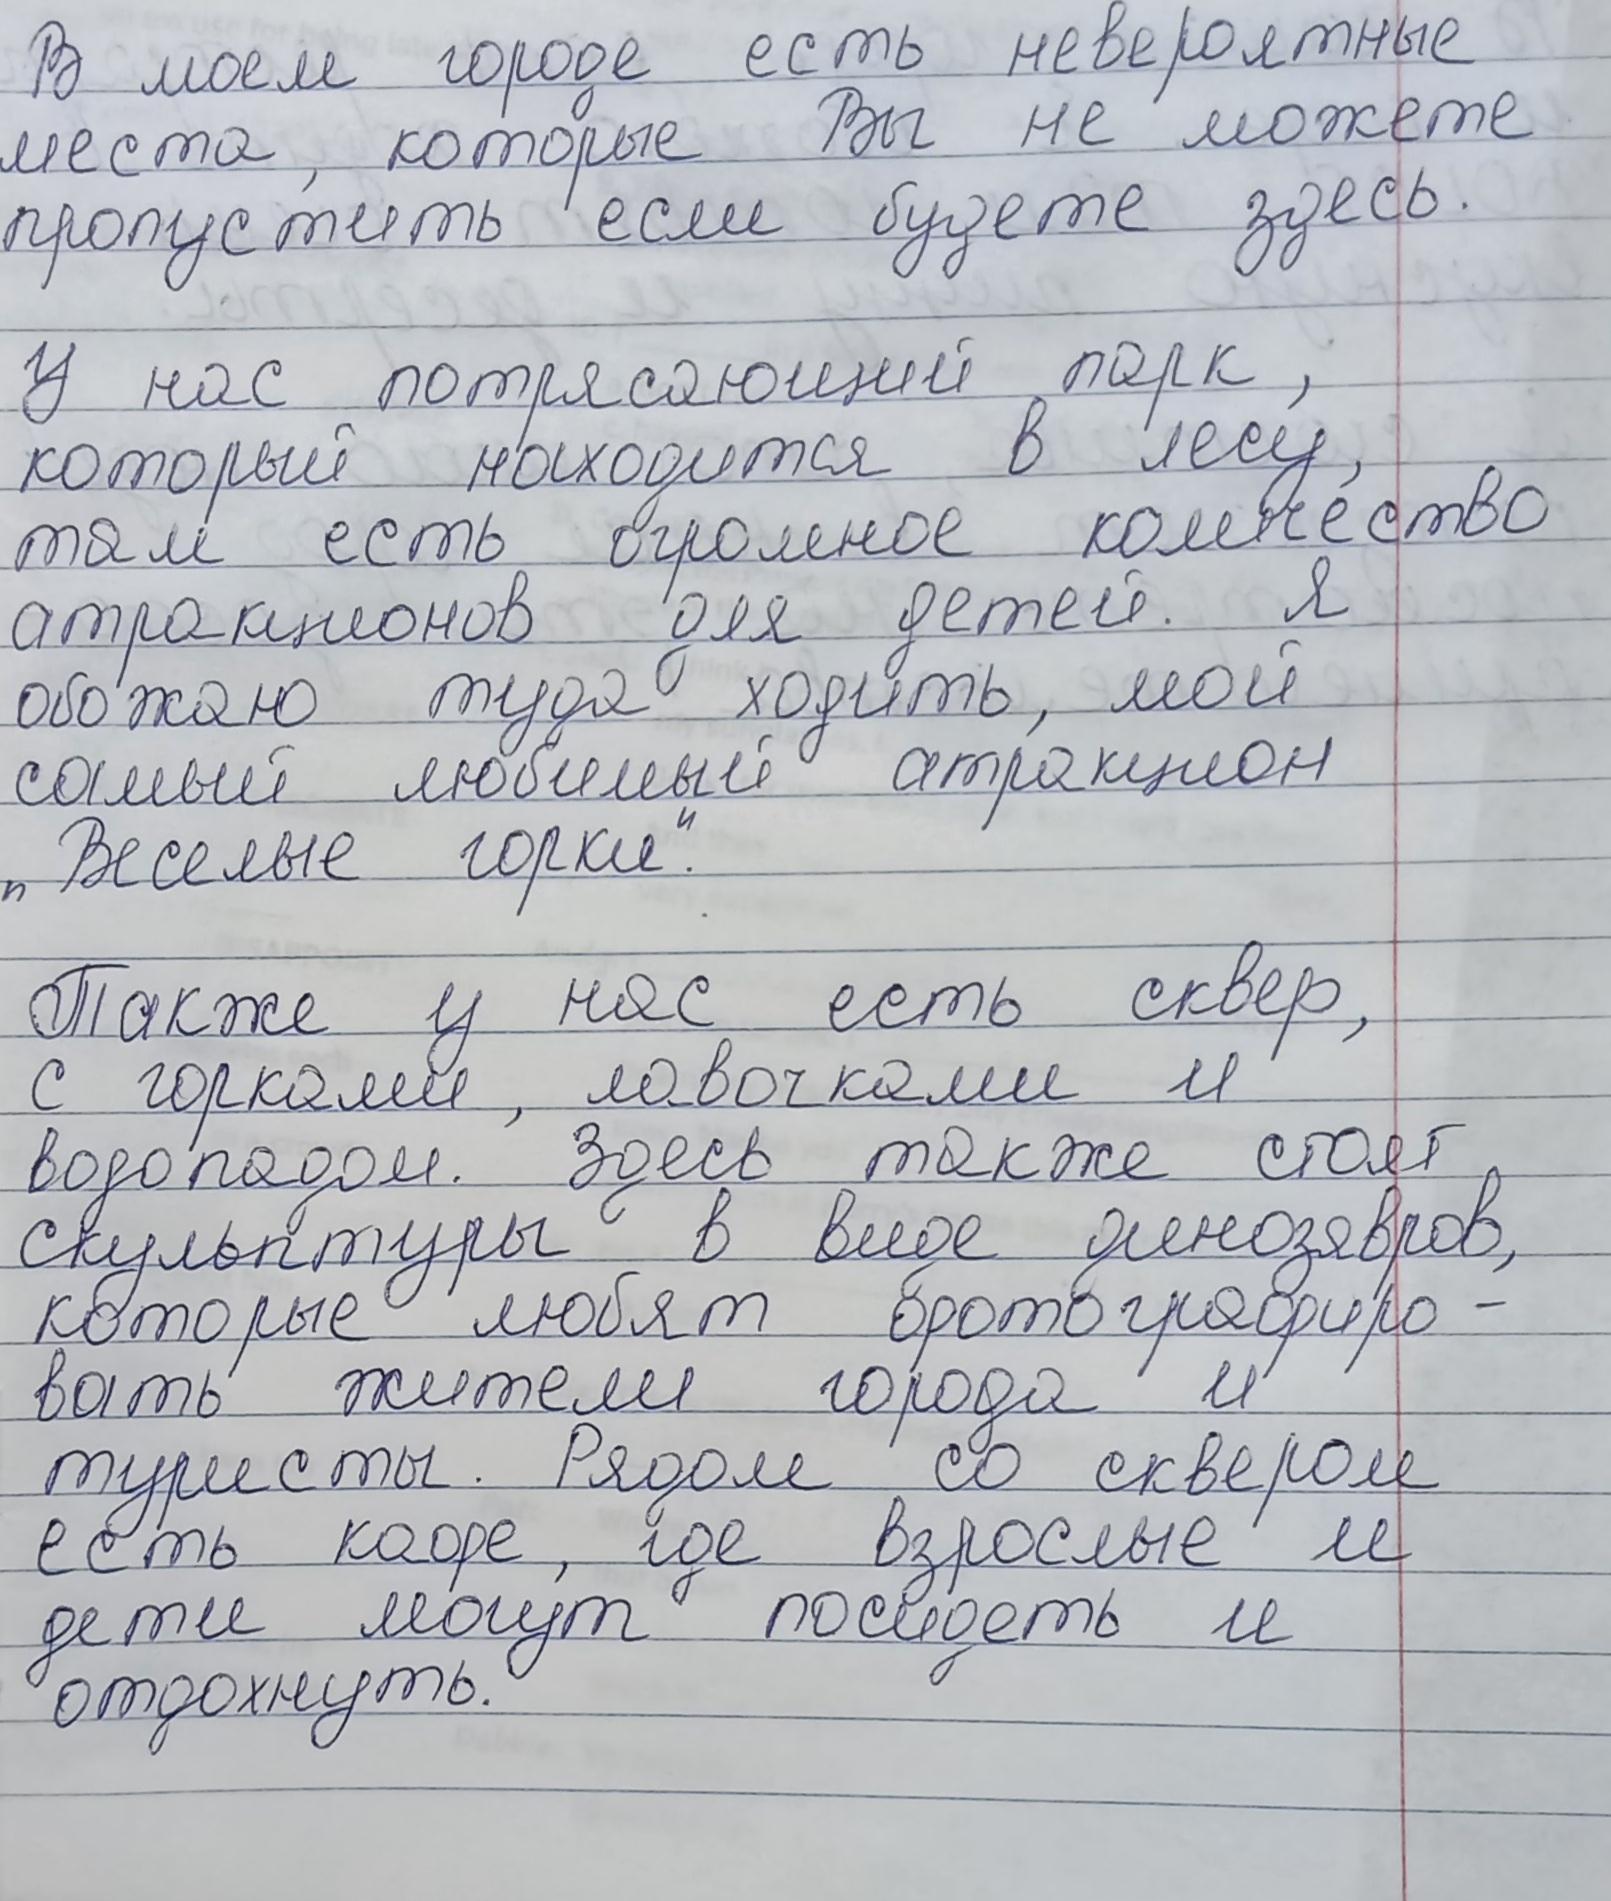 В моем городе есть невероятные
места, которые Вы не можете
пропустить если будете здесь.
У нас потрясающий парк,
который находится в лесу,
там есть огромное количество
атракционов для детей. Я
обожаю туда ходить, мой
самый любимый атракцион
„Веселые горки“.
Также у нас есть сквер,
с горками, лавочками и
водопадом. Здесь также стоят
скульптуры в виде динозавров,
которые любят фотографиро-
вать жители города и
туристы. Рядом со сквером
есть кафе, где взрослые и
дети могут посидеть и
отдохнуть.